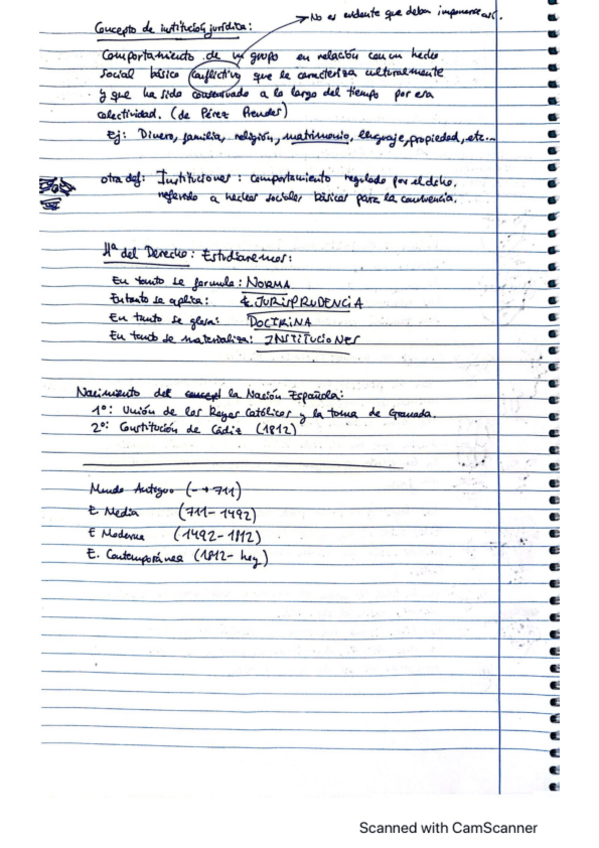 → No es evidente que deban imponerse así.
Concepto de institución jurídica:
Comportamiento de un grupo en relación con un hecho
social básico conflictivo que le caracteriza culturalmente
y que ha sido conservado a lo largo del tiempo por esa
colectividad. (de Pérez Prendes)
Ej: Dinero, familia, religión, matrimonio, lenguaje, propiedad, etc...
otra def: Instituciones: comportamiento regulado por el dcho.
referido a hechos sociales básicos para la convivencia.
Hª del Derecho: Estudiaremos:
En tanto se formula: NORMA
En tanto se aplica: JURISPRUDENCIA
En tanto se glosa: DOCTRINA
En tanto se materializa: INSTITUCIONES
Nacimiento del la Nación Española:
1º: Unión de los Reyes Católicos y la toma de Granada.
2º: Constitución de Cádiz (1812)
Mundo Antiguo (- → 711)
E. Media (711-1492)
E Moderna (1492-1812)
E. Contemporánea (1812- hoy)
Scanned with CamScanner